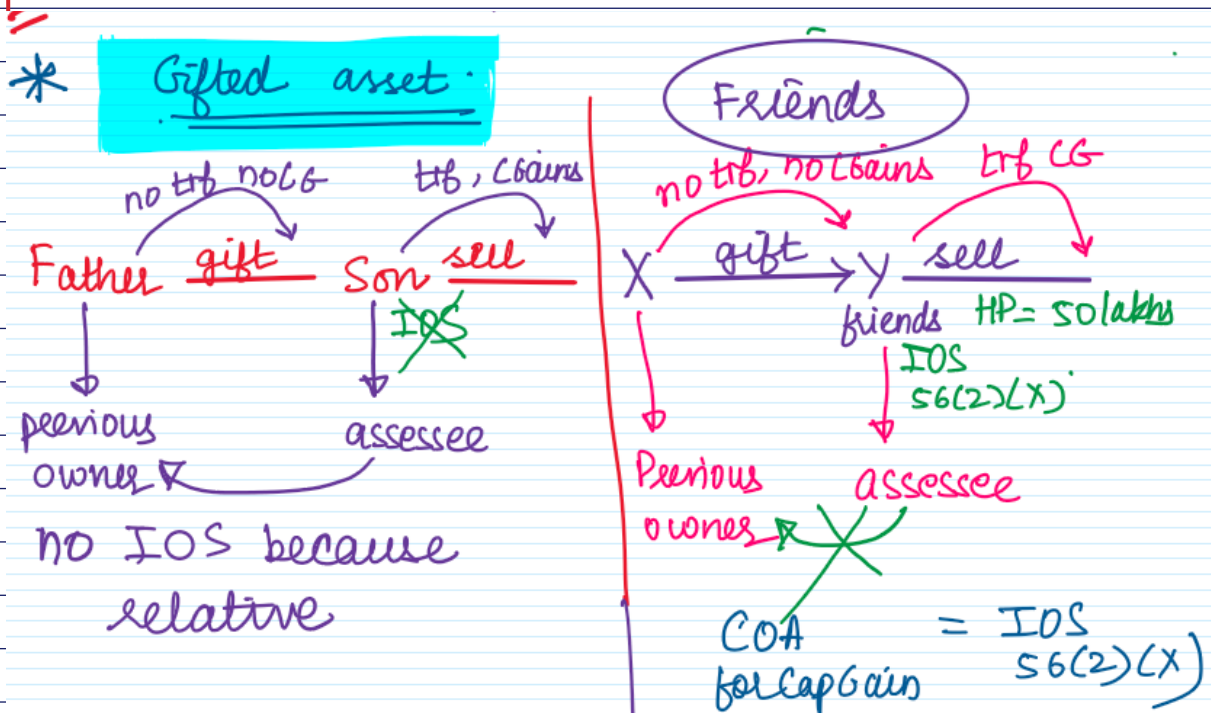 * Gifted asset.
no trf no CG
trf, CGains
Father gift Son sell
IOS
previous
owner
assessee
no IOS because
relative
Friends
no trf, no CGains
trf CG
X gift Y sell
friends HP = 50 lakhs
IOS
56(2)(X)
Previous
owner
assessee
COA = IOS
for Cap Gain 56(2)(X)